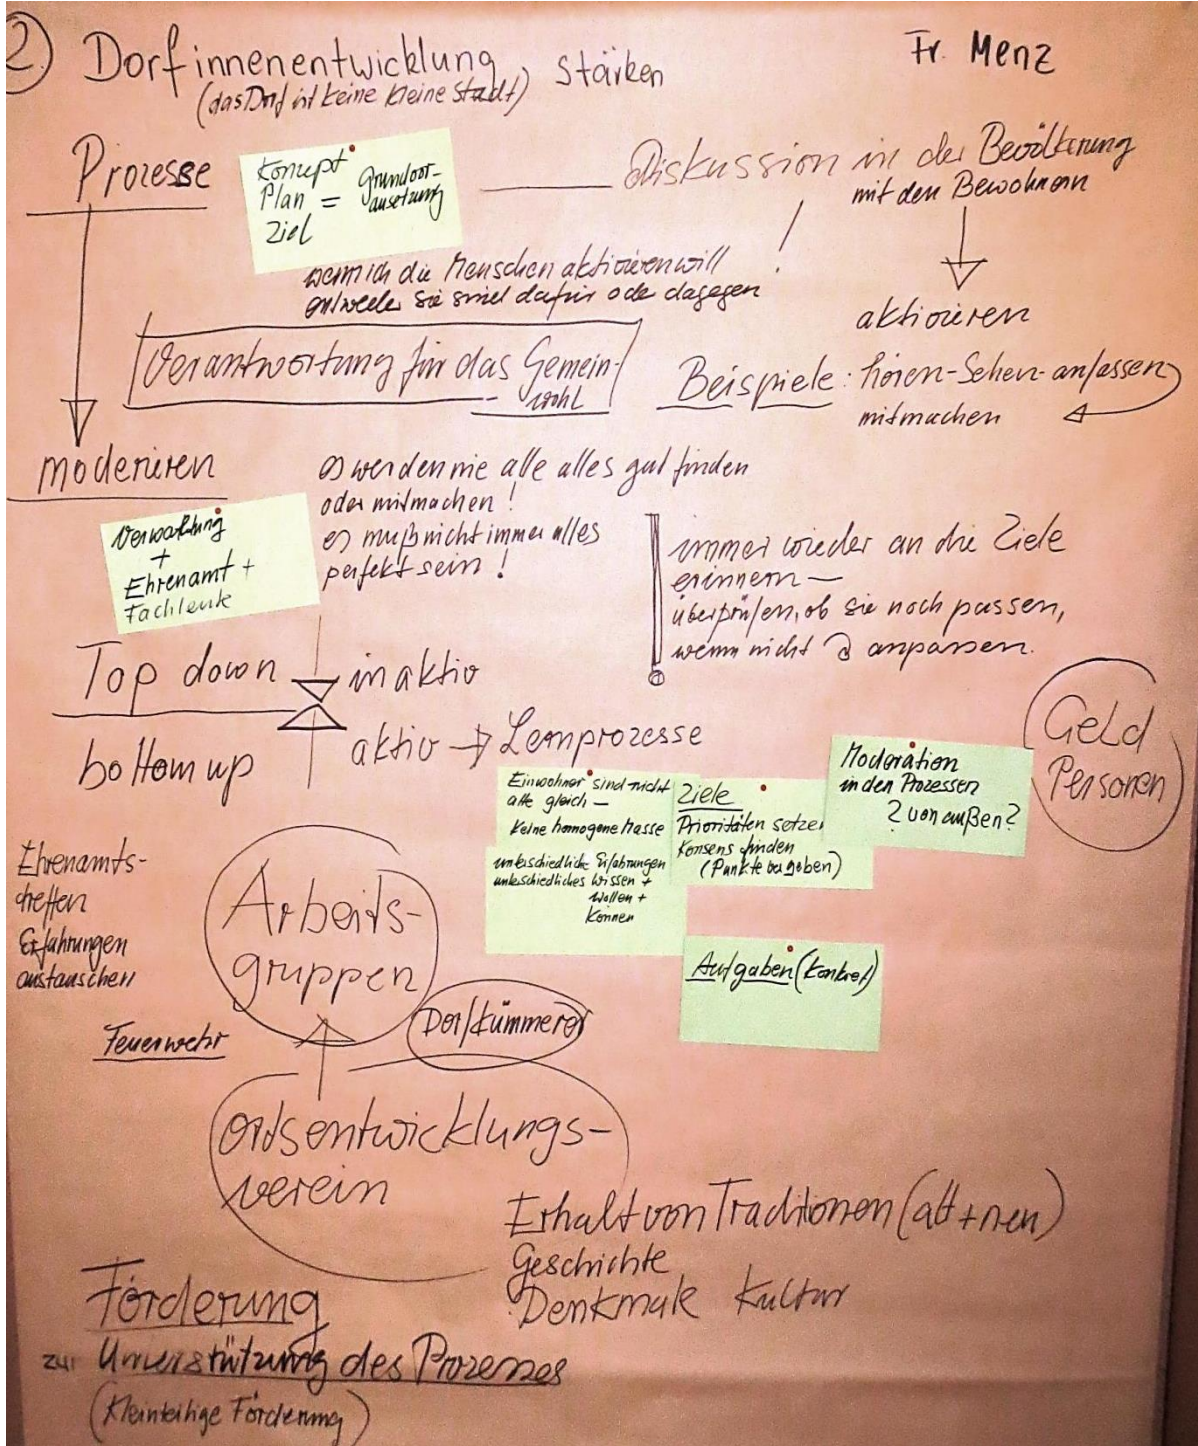 2) Dorfinnenentwicklung, stärken
Fr. Menz
(das Dorf ist keine kleine Stadt)
Prozesse
Konzept
Plan = Grundvor-
ausetzung
Ziel
Diskussion in der Bevölkerung
mit den Bewohnern
!
wenn ich die Menschen aktivieren will
entweder sie sind dafür oder dagegen
aktivieren
Verantwortung für das Gemein-
wohl
Beispiele: hören-Sehen-anfassen
mitmachen
moderieren
es werden nie alle alles gut finden
oder mitmachen!
es muß nicht immer alles
perfekt sein!
Verwaltung
+
Ehrenamt +
Fachleute
immer wieder an die Ziele
erinnern —
überprüfen, ob sie noch passen,
wenn nicht anpassen.
Top down
inaktiv
bottom up
aktiv → Lernprozesse
Geld
Personen
Einwohner sind nicht
alle gleich —
Keine homogene Masse
unterschiedliche Erfahrungen
unterschiedliches Wissen +
Wollen +
Können
Ziele
Prioritäten setzen
Konsens finden
(Punkte vergeben)
Moderation
in den Prozessen
? von außen?
Aufgaben (konkret)
Ehrenamts-
treffen
Erfahrungen
austauschen
Arbeits-
gruppen
Dorfkümmerer
Feuerwehr
Ortsentwicklungs-
verein
Erhalt von Traditionen (alt + neu)
Geschichte
Denkmale Kultur
Förderung
zur Unterstützung des Prozesses
(Kleinteilige Förderung)